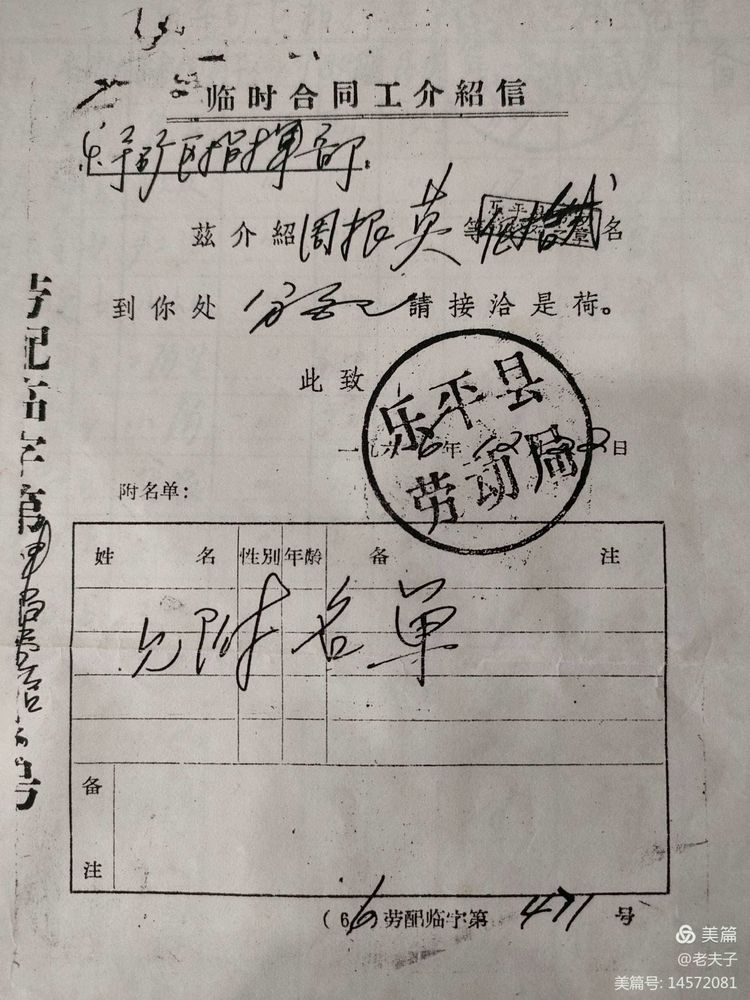 临时合同工介紹信
乐平矿区指揮部.
兹介紹周根英等 名
到你处 請接洽是荷。
此致
乐平县
劳动局
一九六6年12月22日
附名单：
姓名 性别 年龄 备注
见附名单
备注
(66)劳配临字第471号
劳配临字第 号
美篇
@老夫子
美篇号: 14572081